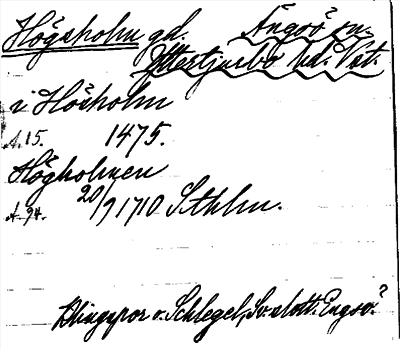 Högsholm gd. Ängsö? sn.
Yttertjurbo hd. Vst.
i Hösholm
A.15. 1475.
Högholmen
A.94. 20/9 1710 Sthlm.
Klingspor o. Schlegel, Sv. slott. Engsö?